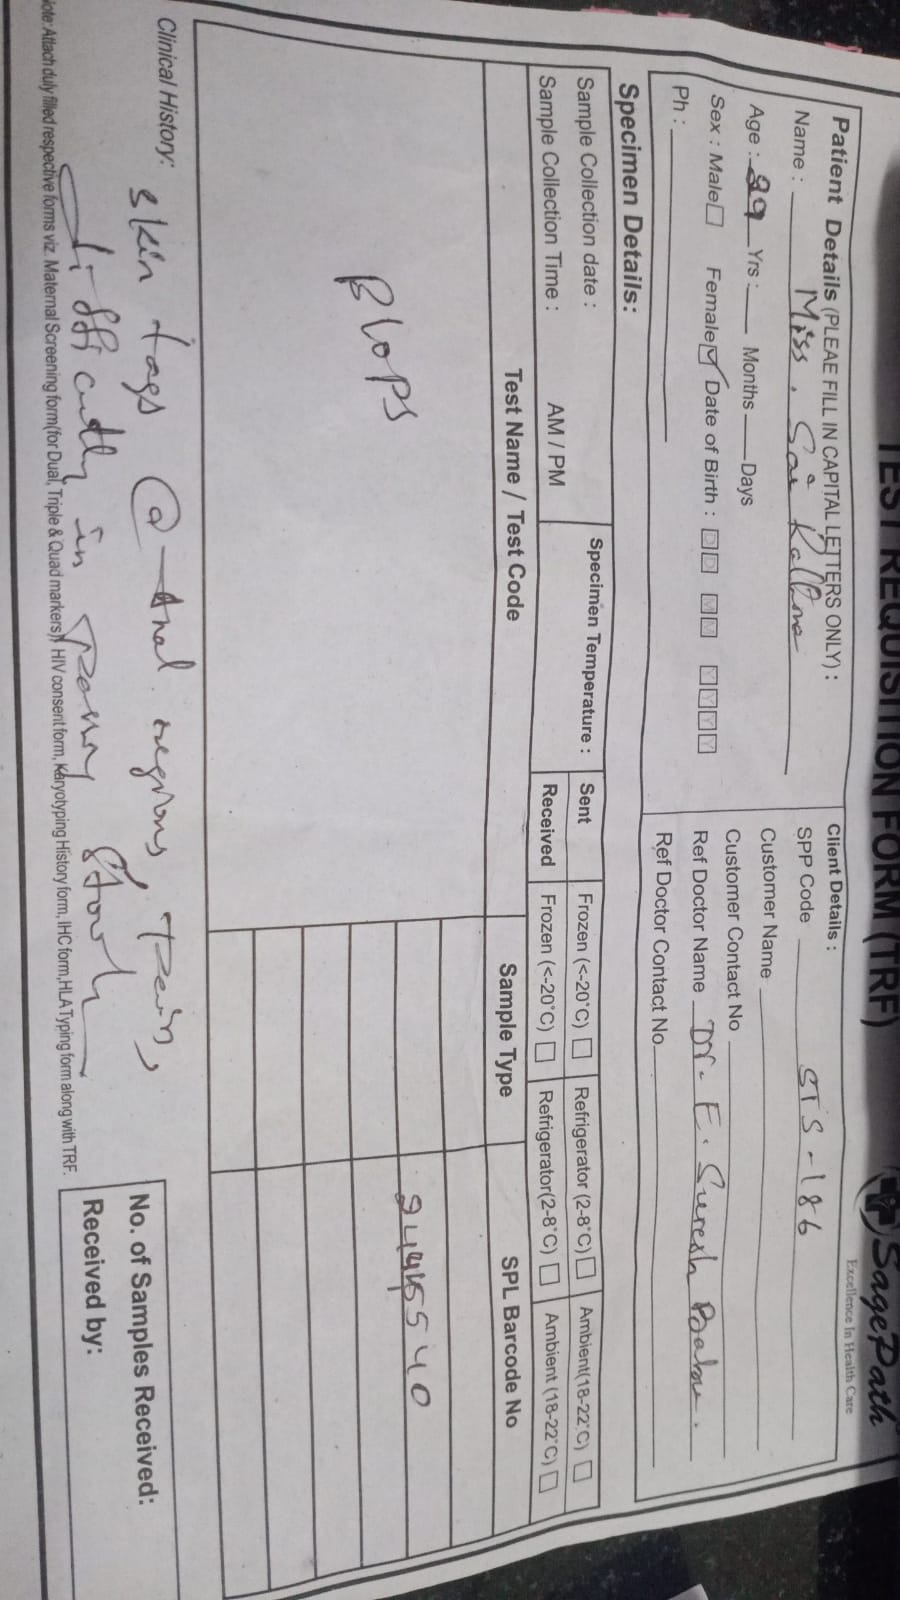 TEST REQUISITION FORM (TRF)
SagePath
Excellence In Health Care
Patient Details (PLEAE FILL IN CAPITAL LETTERS ONLY) :
Name : Miss. Sai Kalpana
Age : 29 Yrs : Months Days
Sex : Male Female Date of Birth : DD MM YYYY
Ph :
Client Details :
SPP Code STS-186
Customer Name
Customer Contact No
Ref Doctor Name Dr. E. Suresh Babu.
Ref Doctor Contact No
Specimen Details:
Sample Collection date :
Sample Collection Time : AM / PM
Specimen Temperature :
Sent Frozen (<-20°C) Refrigerator (2-8°C) Ambient(18-22°C)
Received Frozen (<-20°C) Refrigerator(2-8°C) Ambient (18-22°C)
Test Name / Test Code Sample Type SPL Barcode No
Biops
Clinical History: skin tags @ Anal regions, Pain,
difficulty in Passing Stools
No. of Samples Received:
Received by:
Note: Attach duly filled respective forms viz. Maternal Screening form(for Dual, Triple & Quad markers), HIV consent form, Karyotyping History form, IHC form,HLA Typing form along with TRF.